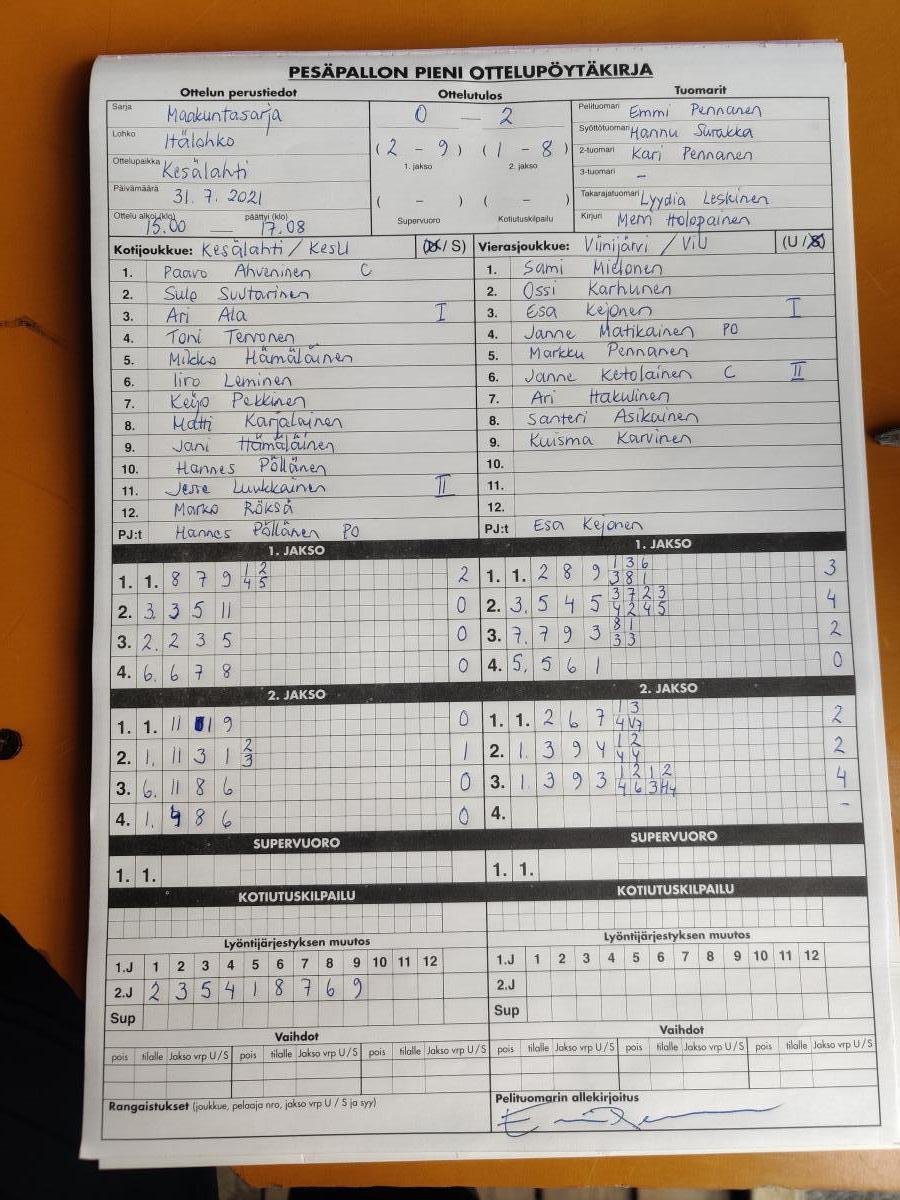 PESÄPALLON PIENI OTTELUPÖYTÄKIRJA
Ottelun perustiedot
Sarja Maakuntasarja
Lohko Itälohko
Ottelupaikka Kesälahti
Päivämäärä 31.7.2021
Ottelu alkoi (klo) 15.00 — päättyi (klo) 17.08
Ottelutulos
0 — 2
(2 - 9) (1 - 8)
1. jakso 2. jakso
( - ) ( - )
Supervuoro Kotiutuskilpailu
Tuomarit
Pelituomari Emmi Pennanen
Syöttötuomari Hannu Surakka
2-tuomari Kari Pennanen
3-tuomari –
Takarajatuomari Lyydia Leskinen
Kirjuri Meni Holopainen
Kotijoukkue: Kesälahti / KesU (U / S)
1. Paavo Ahveninen C
2. Sulo Suutarinen
3. Ari Ala I
4. Toni Tervonen
5. Mikko Hämäläinen
6. Iiro Leminen
7. Keijo Pekkinen
8. Matti Karjalainen
9. Jani Hämäläinen
10. Hannes Pöllänen
11. Jesse Luukkainen II
12. Marko Röksä
PJ:t Hannes Pöllänen PO
Vierasjoukkue: Viinijärvi / ViU (U / S)
1. Sami Mielonen
2. Ossi Karhunen
3. Esa Kejonen I
4. Janne Matikainen PO
5. Markku Pennanen
6. Janne Ketolainen C II
7. Ari Hakulinen
8. Santeri Asikainen
9. Kuisma Karvinen
10.
11.
12.
PJ:t Esa Kejonen
1. JAKSO
1. 1. 8 7 9 1 2 2
4 5
2. 3. 3 5 11 0
3. 2. 2 3 5 0
4. 6. 6 7 8 0
2. JAKSO
1. 1. 11 1 9 0
2. 1. 11 3 1 2 1
3
3. 6. 11 8 6 0
4. 1. 4 8 6 0
SUPERVUORO
1. 1.
KOTIUTUSKILPAILU
Lyöntijärjestyksen muutos
1.J 1 2 3 4 5 6 7 8 9 10 11 12
2.J 2 3 5 4 1 8 7 6 9
Sup
Vaihdot
pois tilalle Jakso vrp U / S pois tilalle Jakso vrp U / S pois tilalle Jakso vrp U / S
Rangaistukset (joukkue, pelaaja nro, jakso vrp U / S ja syy)
1. JAKSO
1. 1. 2 8 9 1 3 6 3
3 8 1
2. 3. 5 4 5 3 7 2 3 4
4 2 4 5
3. 7. 7 9 3 8 1 2
3 3
4. 5. 5 6 1 0
2. JAKSO
1. 1. 2 6 7 1 3 2
4 V7
2. 1. 3 9 4 1 2 2
4 4
3. 1. 3 9 3 1 2 1 2 4
4 6 3 4
4. –
SUPERVUORO
1. 1.
KOTIUTUSKILPAILU
Lyöntijärjestyksen muutos
1.J 1 2 3 4 5 6 7 8 9 10 11 12
2.J
Sup
Vaihdot
pois tilalle Jakso vrp U / S pois tilalle Jakso vrp U / S pois tilalle Jakso vrp U / S
Pelituomarin allekirjoitus